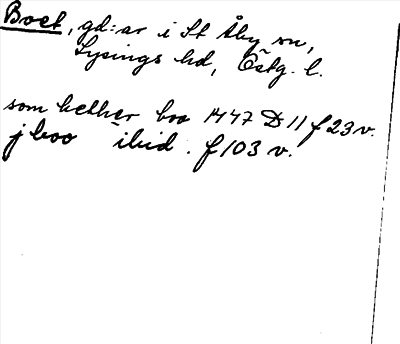 Boet, gd:ar i St Åby sn,
Lysings hd, Östg. l.
som hether boo 1447 D 11 f 23 v.
j boo ibid. f 103 v.